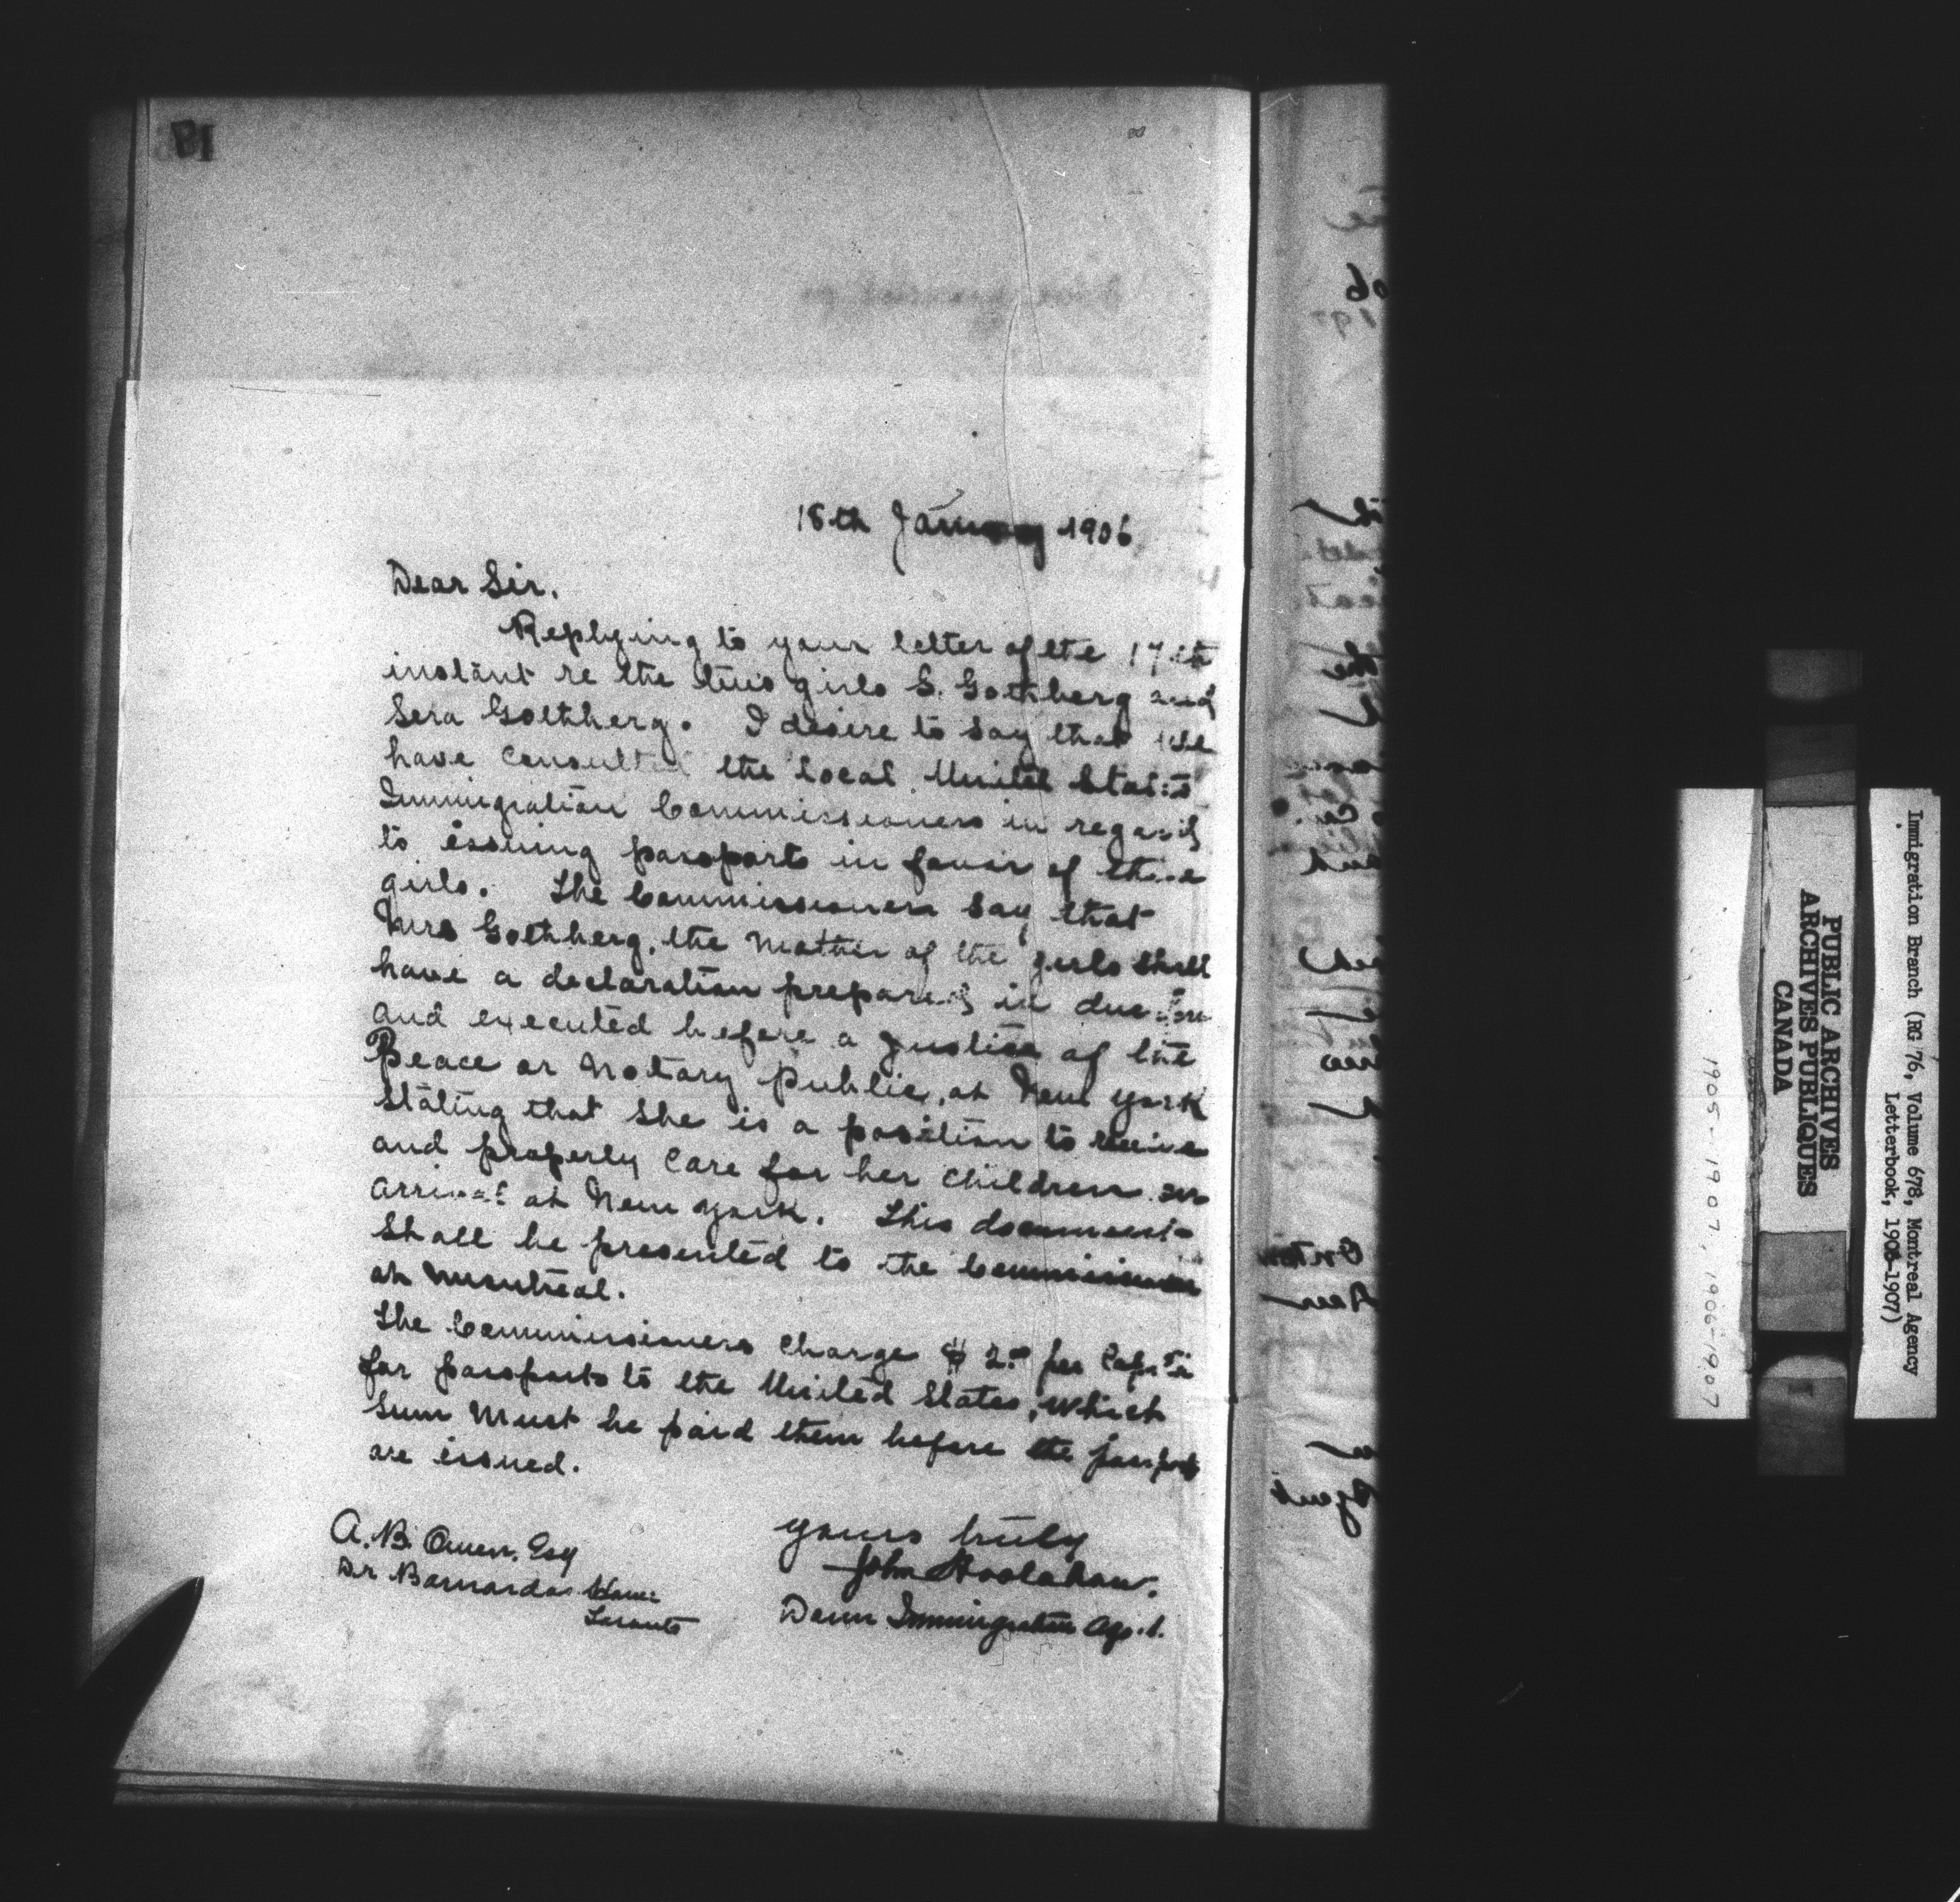 18th January 1906
Dear Sir.
Replying to your letter of the 17th
instant re the two girls S. Gothberg and
Sera Gothberg. I desire to say that we
have consulted the local United States
Immigration Commissioners in regard
to issuing passports in favor of these
girls. The Commissioners say that
Mrs Gothberg, the mother of the girls shall
have a declaration prepared in due form
and executed before a Justice of the
Peace or Notary Public, at New York
stating that she is a position to receive
and properly care for her children on
arrival at New York. This document
shall be presented to the Commissioner
at Montreal.
The Commissioners charge $ 2.00 per Capita
for passports to the United States, which
sum must be paid them before the passports
are issued.
Yours truly
John Hoolahan.
Domn Immigration Agt.
A. B. Owen, Esq
Dr Barnardos Home
Toronto
Immigration Branch (RG 76, Volume 678, Montreal Agency
Letterbook, 1906-1907)
PUBLIC ARCHIVES
ARCHIVES PUBLIQUES
CANADA
1905-1907, 1906-1907